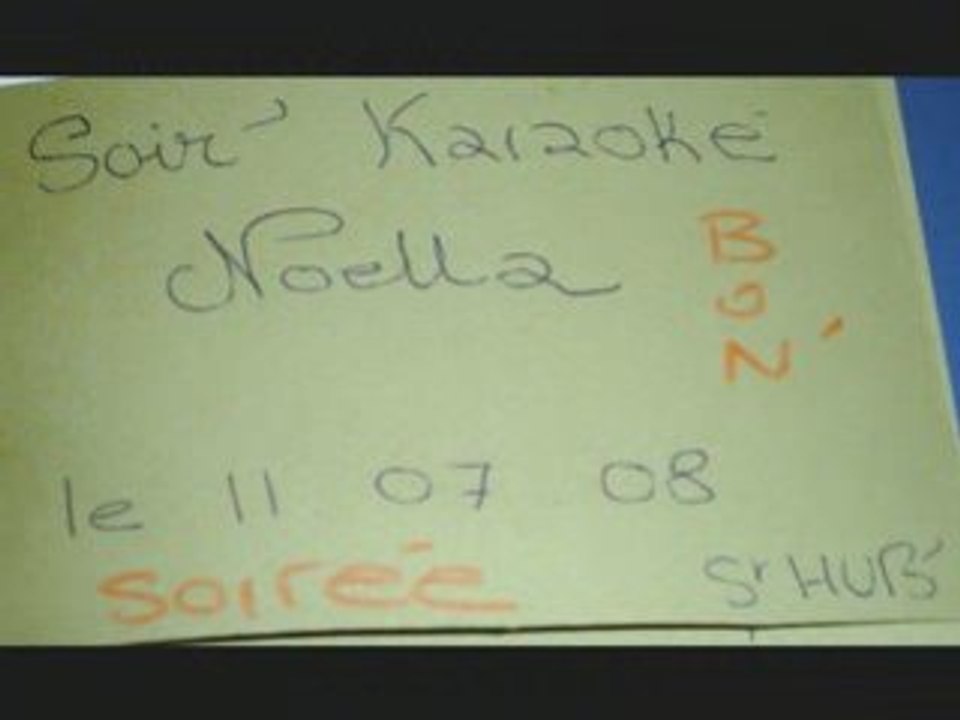 Soir' Karaoke
Noella
B
O
N'
le 11 07 08
soirée
St HUB'